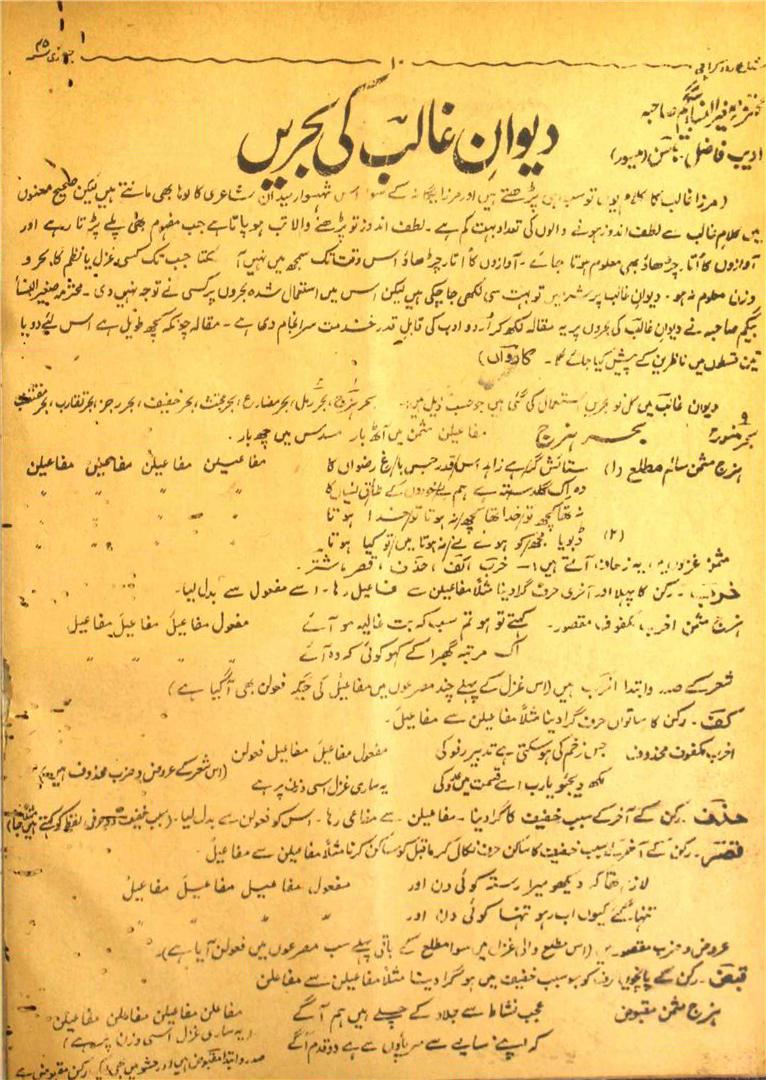 جنوری ۴۵ ۱۰
محترمہ صغیر النساء بیگم صاحبہ
ادیب فاضل (میسور)
دیوانِ غالبؔ کی بحریں
(مرزا غالب کا کلام یوں تو سب ہی پڑھتے ہیں اور مرزا یگانہ کے سوا اس شہسوار میدان شاعری کا لوہا بھی مانتے ہیں لیکن صحیح معنوں
میں کلام غالب سے لطف اندوز ہونے والوں کی تعداد بہت کم ہے۔ لطف اندوز تو پڑھنے والا تب ہو پاتا ہے جب مفہوم بھی پلے پڑتا رہے اور
آوازوں کا اُتار چڑھاؤ بھی معلوم ہوتا جائے۔ آوازوں کا اتار چڑھاؤ اس وقت تک سمجھ میں نہیں آ سکتا جب تک کسی غزل یا نظم کا بحر و
وزن معلوم نہ ہو۔ دیوانِ غالب پر شرحیں تو بہت سی لکھی جا چکی ہیں لیکن اس میں استعمال شدہ بحروں پر کسی نے توجہ نہیں دی۔ محترمہ صغیر النساء
بیگم صاحبہ نے دیوان غالبؔ کی بحروں پر یہ مقالہ لکھ کر اُردو ادب کی قابلِ قدر خدمت سر انجام دی ہے۔ مقالہ چونکہ کچھ طویل ہے اس لئے دو یا
تین قسطوں میں ناظرین کے پیش کیا جائے گا۔ کارواں)
دیوان غالبؔ میں کل نو بحریں استعمال کی گئی ہیں جو حسب ذیل ہیں:۔ بحر ہزج، بحر رمل، بحر مضارع، بحر مجتث، بحر خفیف، بحر رجز، بحر تقارب، بحر مقتضب
و بحر منسرح
بحر ہزج مفاعیلن مثمن میں آٹھ بار مسدس میں چھ بار۔
ہزج مثمن سالم مطلع (۱) ستائش گر ہے زاہد اس/قدر جس با/غ رضواں کا مفاعیلن مفاعیلن مفاعیلن مفاعیلن
وہ اک گلدستہ ہے ہم بے خودوں کے طاق نسیاں کا " " " "
نہ تھا کچھ تو/خدا تھا کچھ/نہ ہوتا تو/خدا ہوتا " " " "
(۲) ڈبویا مجھ/کو ہونے نے/نہ ہوتا میں/تو کیا ہوتا " " " "
مثمن غزلوں میں یہ زحاف آتے ہیں:۔ خرب، کف، حذف، قصر، شتر۔
خرب۔ رکن کا پہلا اور آخری حرف گرا دینا مثلاً مفاعیلن سے فاعیل رہا۔ اسے مفعول سے بدل لیا۔
ہزج مثمن اخرب مکفوف مقصور۔ کہتے تو ہو تم سب کہ بت غالیہ مو آئے مفعول مفاعیل مفاعیل مفاعیل
اک مرتبہ گھبرا کے کہو کوئی کہ وہ آئے " " " "
شعر کے صدر و ابتدا اخرب ہیں (اس غزل کے پہلے چند مصرعوں میں مفاعیل کی جگہ فعولن بھی آ گیا ہے)
کف۔ رکن کا ساتواں حرف گرا دینا مثلاً مفاعیلن سے مفاعیل۔
اخرب مکفوف محذوف جس زخم کی ہو سکتی ہے تدبیر رفو کی مفعول مفاعیل مفاعیل فعولن
لکھ دیجیو یارب اسے قسمت میں عدو کی یہ ساری غزل اسی وزن پر ہے (اس شعر کے عروض و ضرب محذوف ہیں)
حذف۔ رکن کے آخر کے سبب خفیف کا گرا دینا۔ مفاعیلن سے مفاعی رہا۔ اس کو فعولن سے بدل لیا۔ (سبب خفیف دو حرفی لفظ کو کہتے ہیں)
قصر۔ رکن کے آخر کے سبب خفیف کا ساکن حرف نکال کر ماقبل کو ساکن کرنا مثلاً مفاعیلن سے مفاعیل۔
لازم تھا کہ دیکھو میرا رستہ کوئی دن اور مفعول مفاعیل مفاعیل مفاعیل
تنہا گئے کیوں اب رہو تنہا کوئی دن اور " " " "
عروض و ضرب مقصور ہیں (اس مطلع والی غزل میں سوا مطلع کے باقی پہلے سب مصرعوں میں فعولن آیا ہے)۔
قبض۔ رکن کے پانچویں حرف کو جو سبب خفیف میں ہو گرا دینا مثلاً مفاعیلن سے مفاعلن
ہزج مثمن مقبوض عجب نشاط سے جلاد کے چلے ہیں ہم آگے مفاعلن مفاعیلن مفاعلن مفاعیلن
کہ اپنے سایے سے سر پاؤں سے ہے دو قدم آگے (یہ ساری غزل اسی وزن پر ہے)
صدر و ابتدا مقبوض ہیں اور حشو میں بھی رکن مقبوض ہے